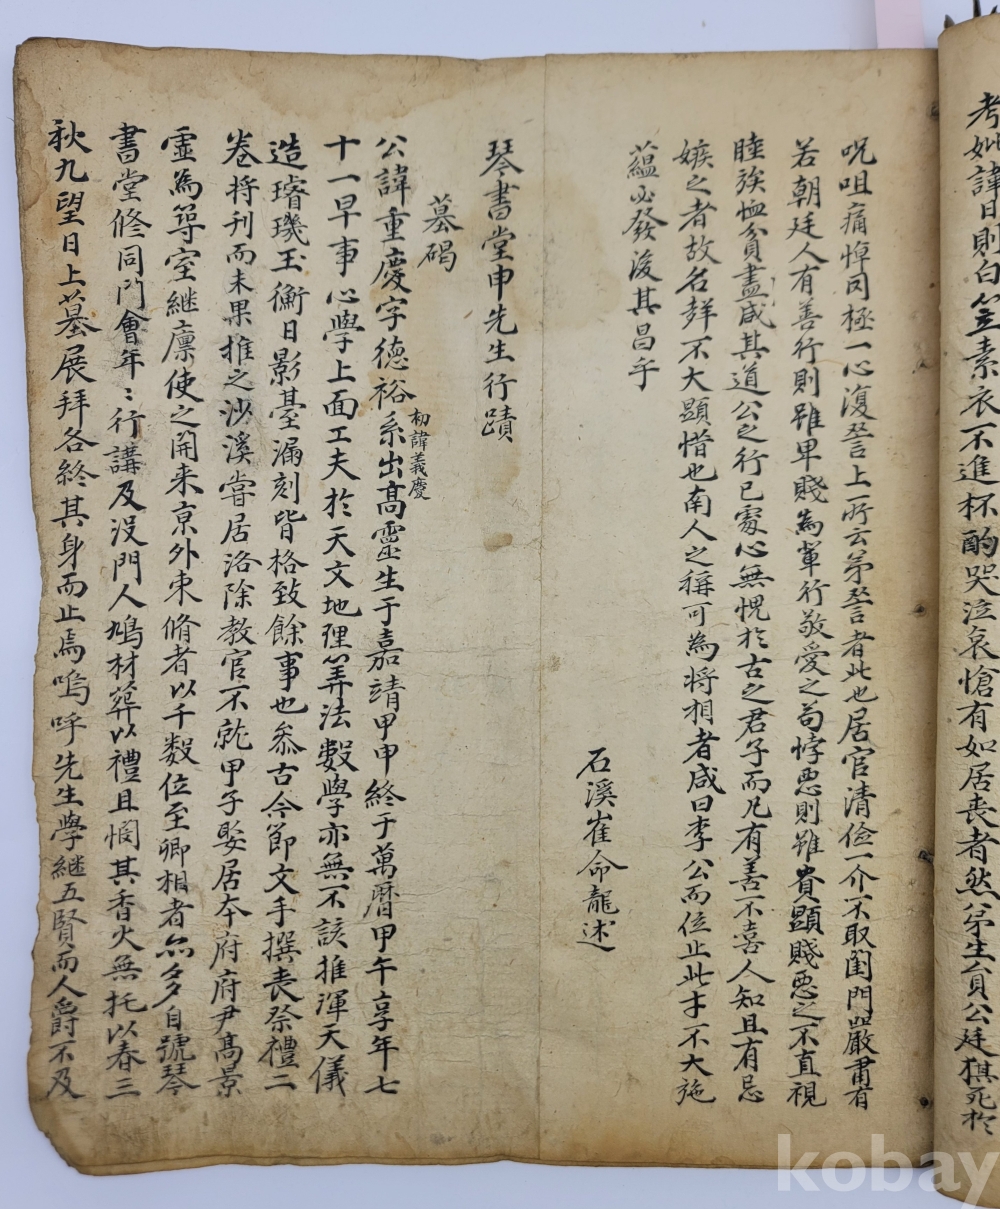 考妣諱日則白笠素衣不進杯酌哭泣哀愴有如居喪者然弟生員公廷猉死於
呪咀痛悼罔極一心復讐上所云弟讐者此也居官清儉一介不取閨門嚴肅有
若朝廷人有善行則雖卑賤為輩行敬愛之苟悖惡則雖貴顯賤惡之不直視
睦族恤貧盡咸其道公之行已處心無愧於古之君子而凡有善不喜人知且有忌
嫉之者故名韡不大顯惜也南人之稱可為將相者咸曰李公而位止此才不大施
蘊必發後其昌乎
石溪崔命龍述
琴書堂申先生行蹟
墓碣
公諱重慶字德裕初諱義慶系出高靈生于嘉靖甲申終于萬曆甲午享年七
十一早事心學上面工夫於天文地理筭法數學亦無不該推渾天儀
造璿璣玉衡日影臺漏刻皆格致餘事也叅古今節文手撰喪祭禮二
卷將刊而未果推之沙溪嘗居洛除教官不就甲子娶居本府府尹高景
虛為筑室継廪使之開来京外束脩者以千數位至卿相者亦多自號琴
書堂修同門會年〻行講及沒門人鳩材葬以禮且憫其香火無托以春三
秋九望日上墓展拜各終其身而止焉嗚呼先生學継五賢而人爵不及
kobay